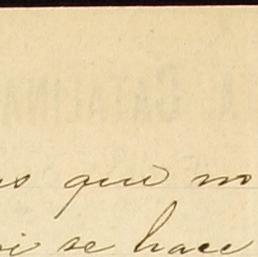 A. CATALINA
que no
se hace